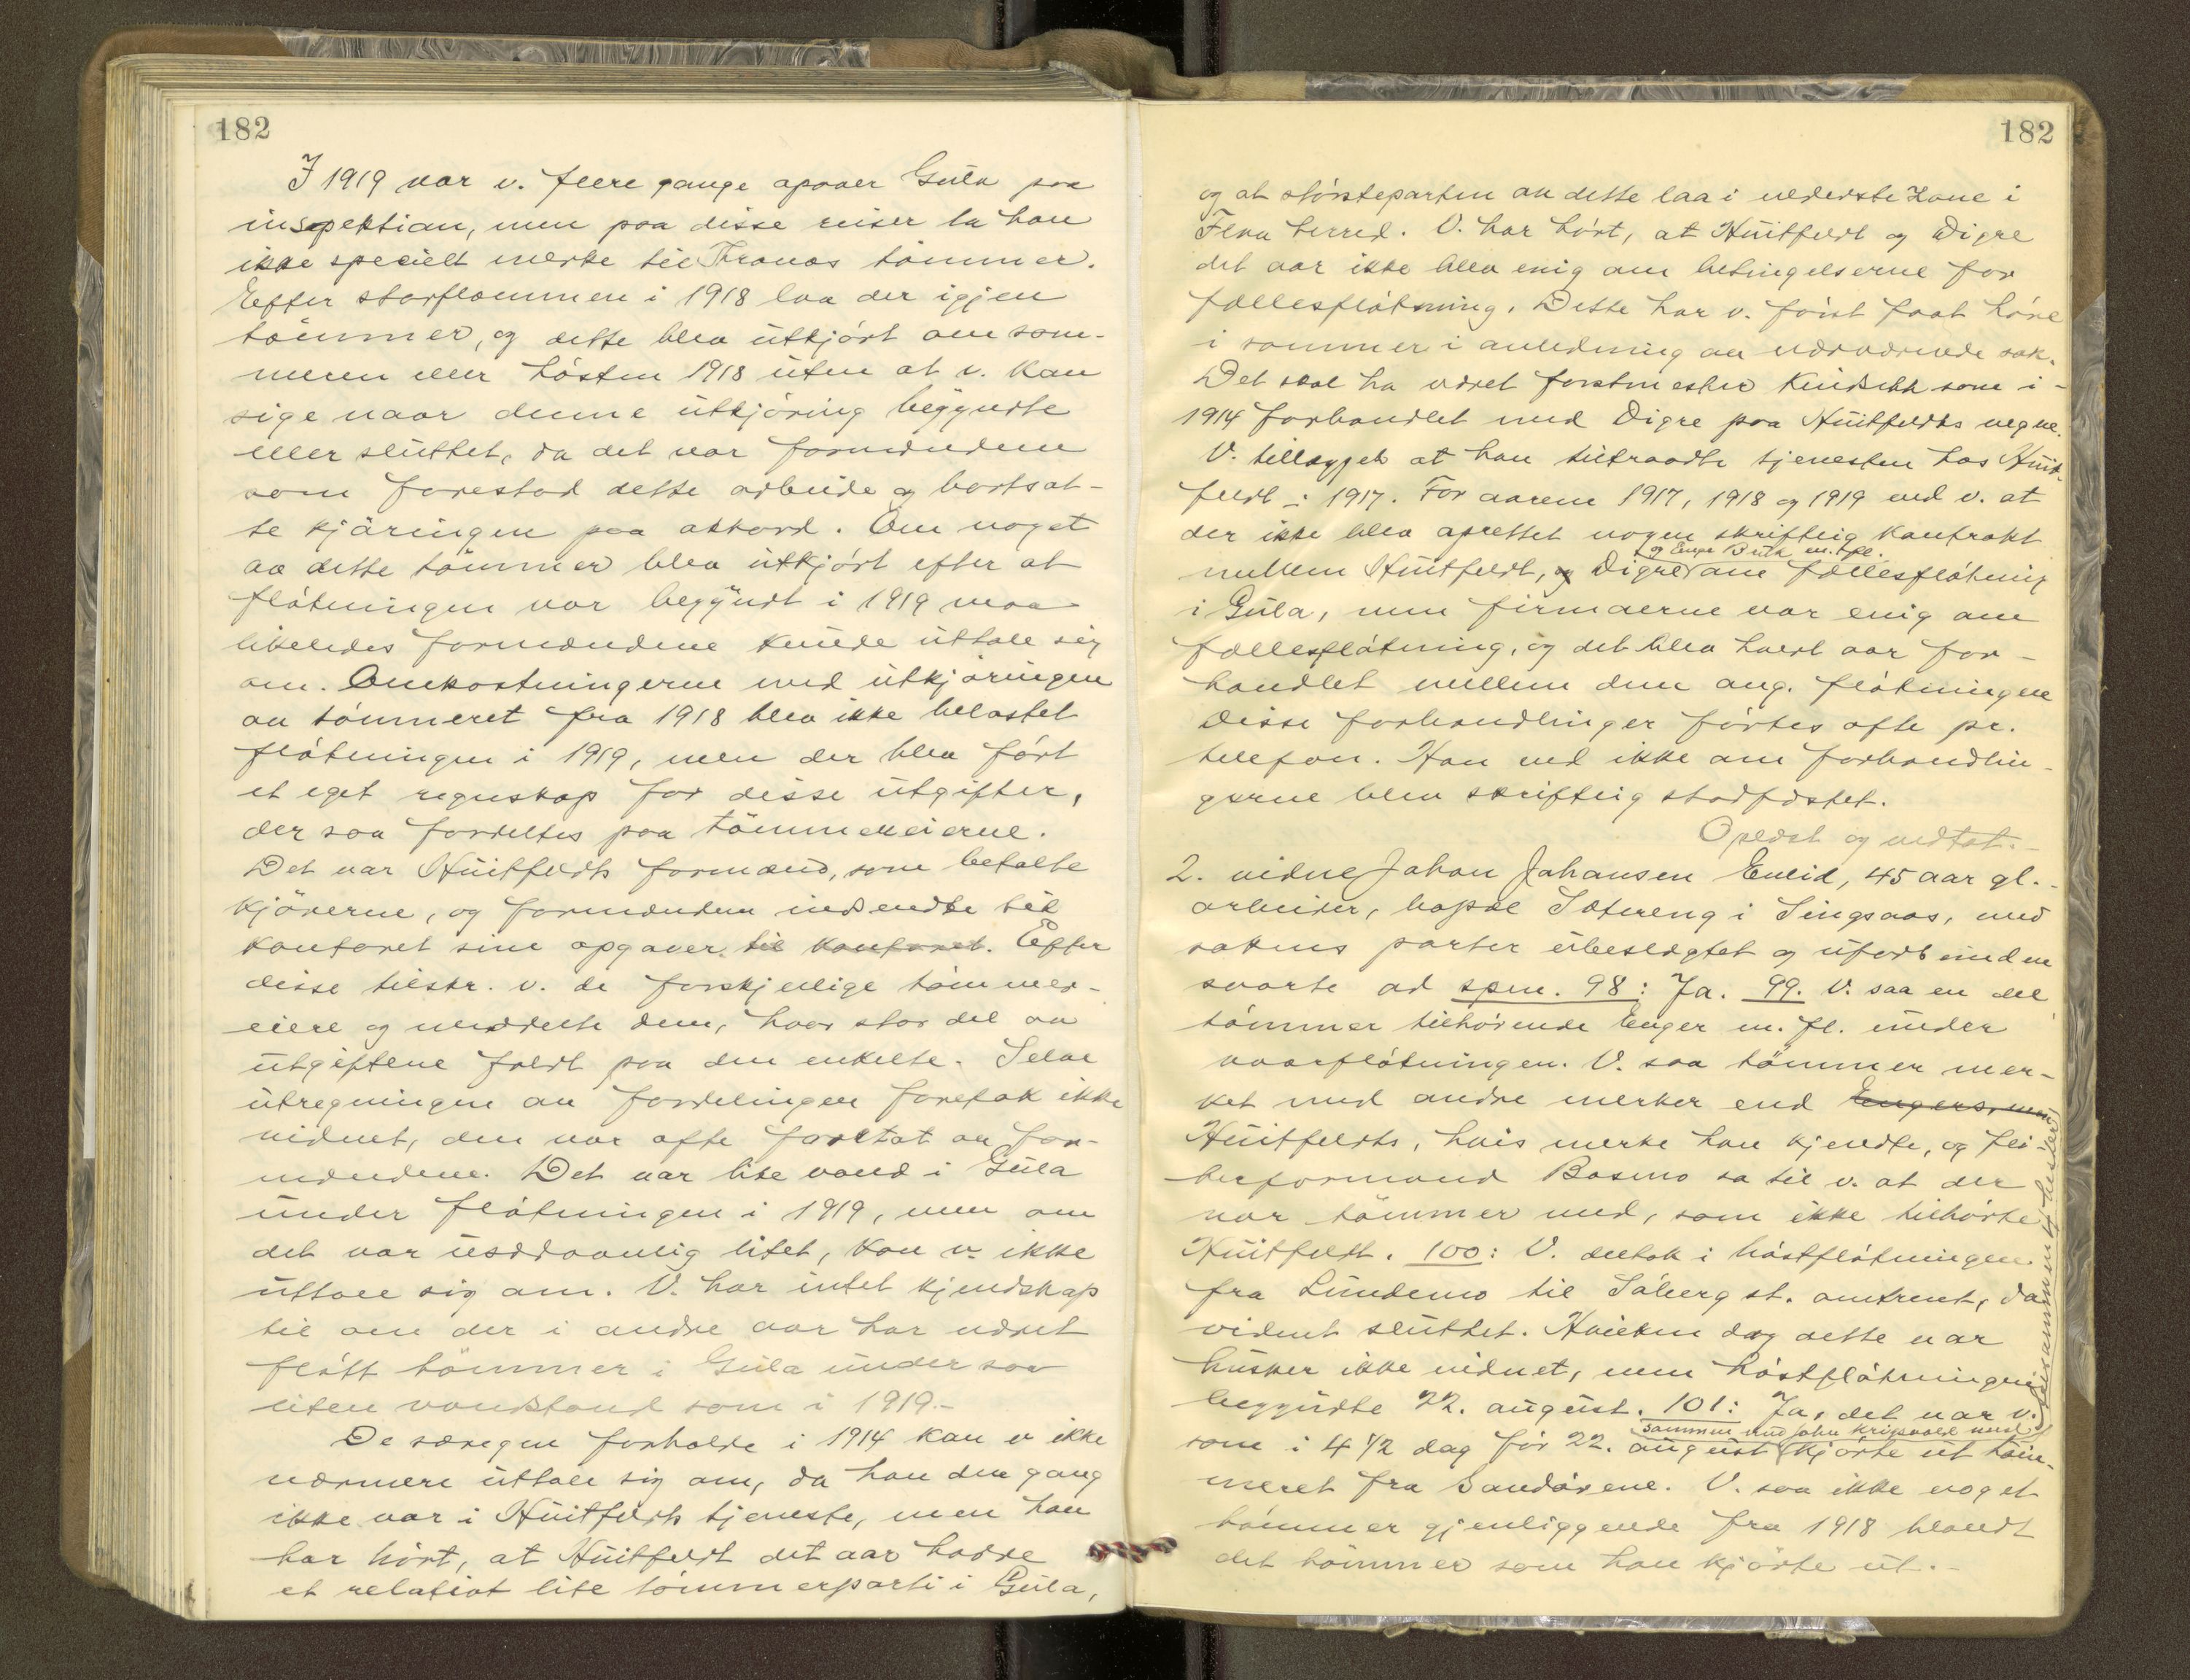 182
I 1919 var v. flere gange opover Gula paa
inspektion, men paa disse reiser la han
ikke specielt merke til Franas tømmer.
Efter storflommen i 1918 laa der igjen
tømmer, og dette blev utkjørt om som-
meren eller høsten 1918 uten at v. kan
sige naar denne utkjøring begyndte
eller sluttet, da det var formændene
som forestod dette arbeide og bortsat-
te kjøringen paa akkord. Om noget
av dette tømmer blev utkjørt efter at
fløtningen var begyndt i 1919 maa
likeledes formændene kunde uttale sig
om. Omkostningerne med utkjøringen
av tømmeret fra 1918 blev ikke belastet
fløtningen i 1919, men der blev ført
et eget regnskap for disse utgifter,
der saa fordeltes paa tømmereierne.
Det var Huitfeldts formænd, som betalte
kjørerne, og formændene indsendte til
kontoret sine opgaver til kontoret. Efter
disse tilskr. v. de forskjellige tømmer-
eiere og meddelte dem, hvor stor del av
utgiftene faldt paa den enkelte. Selve
utregningen av fordelingen foretok ikke
vidnet, den var ofte foretat av for-
mændene. Det var lite vand i Gula
under fløtningen i 1919, men om
det var usædvanlig litet, kan v. ikke
uttale sig om. V. har intet kjendskap
til om der i andre aar har været
fløtt tømmer i Gula under saa
liten vandstand som i 1919.-
De særegne forholde i 1914 kan v ikke
nærmere uttale sig om, da han den gang
ikke var i Huitfeldts tjeneste, men han
har hørt, at Huitfeldt det aar hadde
et relativt lite tømmerparti i Gula,
182
og at størsteparten av dette laa i nederste zone i
Flaa herred. V. har hørt, at Huitfeldt og Digre
det aar ikke blev enig om betingelserne for
fællesfløtning. Dette har v. først faat høre
i sommer i anledning av nærværende sak.
Det skal ha været forstmester som i
1914 forhandlet med Digre paa Huitfeldts vegne.
V. tillægget at han tiltraadte tjenesten hos Huit-
feldt i 1917. For aarene 1917, 1918 og 1919 ved v. at
der ikke blev oprettet nogen skriftlig kontrakt
og Enge Bruk m. fl.
mellem Huitfeldt, og Digre om fællesfløtning
i Gula, men firmaerne var enig om
fællesfløtning, og det blev hvert aar for-
handlet mellem dem ang. fløtningene
Disse forhandlinger førtes ofte pr.
telefon. Han ved ikke om forhandlin-
gerne blev skriftlig stadfæstet.
Oplæst og vedtat.-
2. vidne Johan Johansen Enlid, 45 aar gl.
arbeider, bopæl Sætereng i Singsaas, med
sakens parter ubeslægtet og uforbunden
svarte ad spm. 98: Ja. 99. V. saa en del
tømmer tilhørende Enger m. fl. under
vaarfløtningen. V. saa tømmer mer-
ket med andre merker end Engers, men
Huitfeldts, hvis merke han kjendte, og flø-
terformand Bosmo sa til v. at der
var tømmer med, som ikke tilhørte
Huitfeldt. 100: V. deltok i høstfløtningen
fra Lundemo til Søberg st. omtrent, da
vidnet sluttet. Hvilken dag dette var
husker ikke vidnet, men høstfløtningen
begyndte 22. august. 101: Ja, det var v.
sammen med John Krigsvold med
tilsammen 4 hester
som i 4 1/2 dag før 22. august kjørte ut tøm-
meret fra Sandørene. V. saa ikke noget
tømmer gjenliggende fra 1918 blandt
det tømmer som han kjørte ut.-